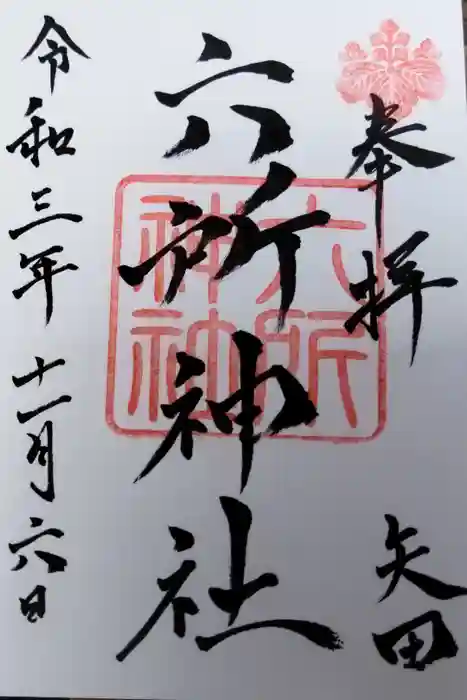 奉拝
矢田
六所神社
六所
神社
令和三年十一月六日